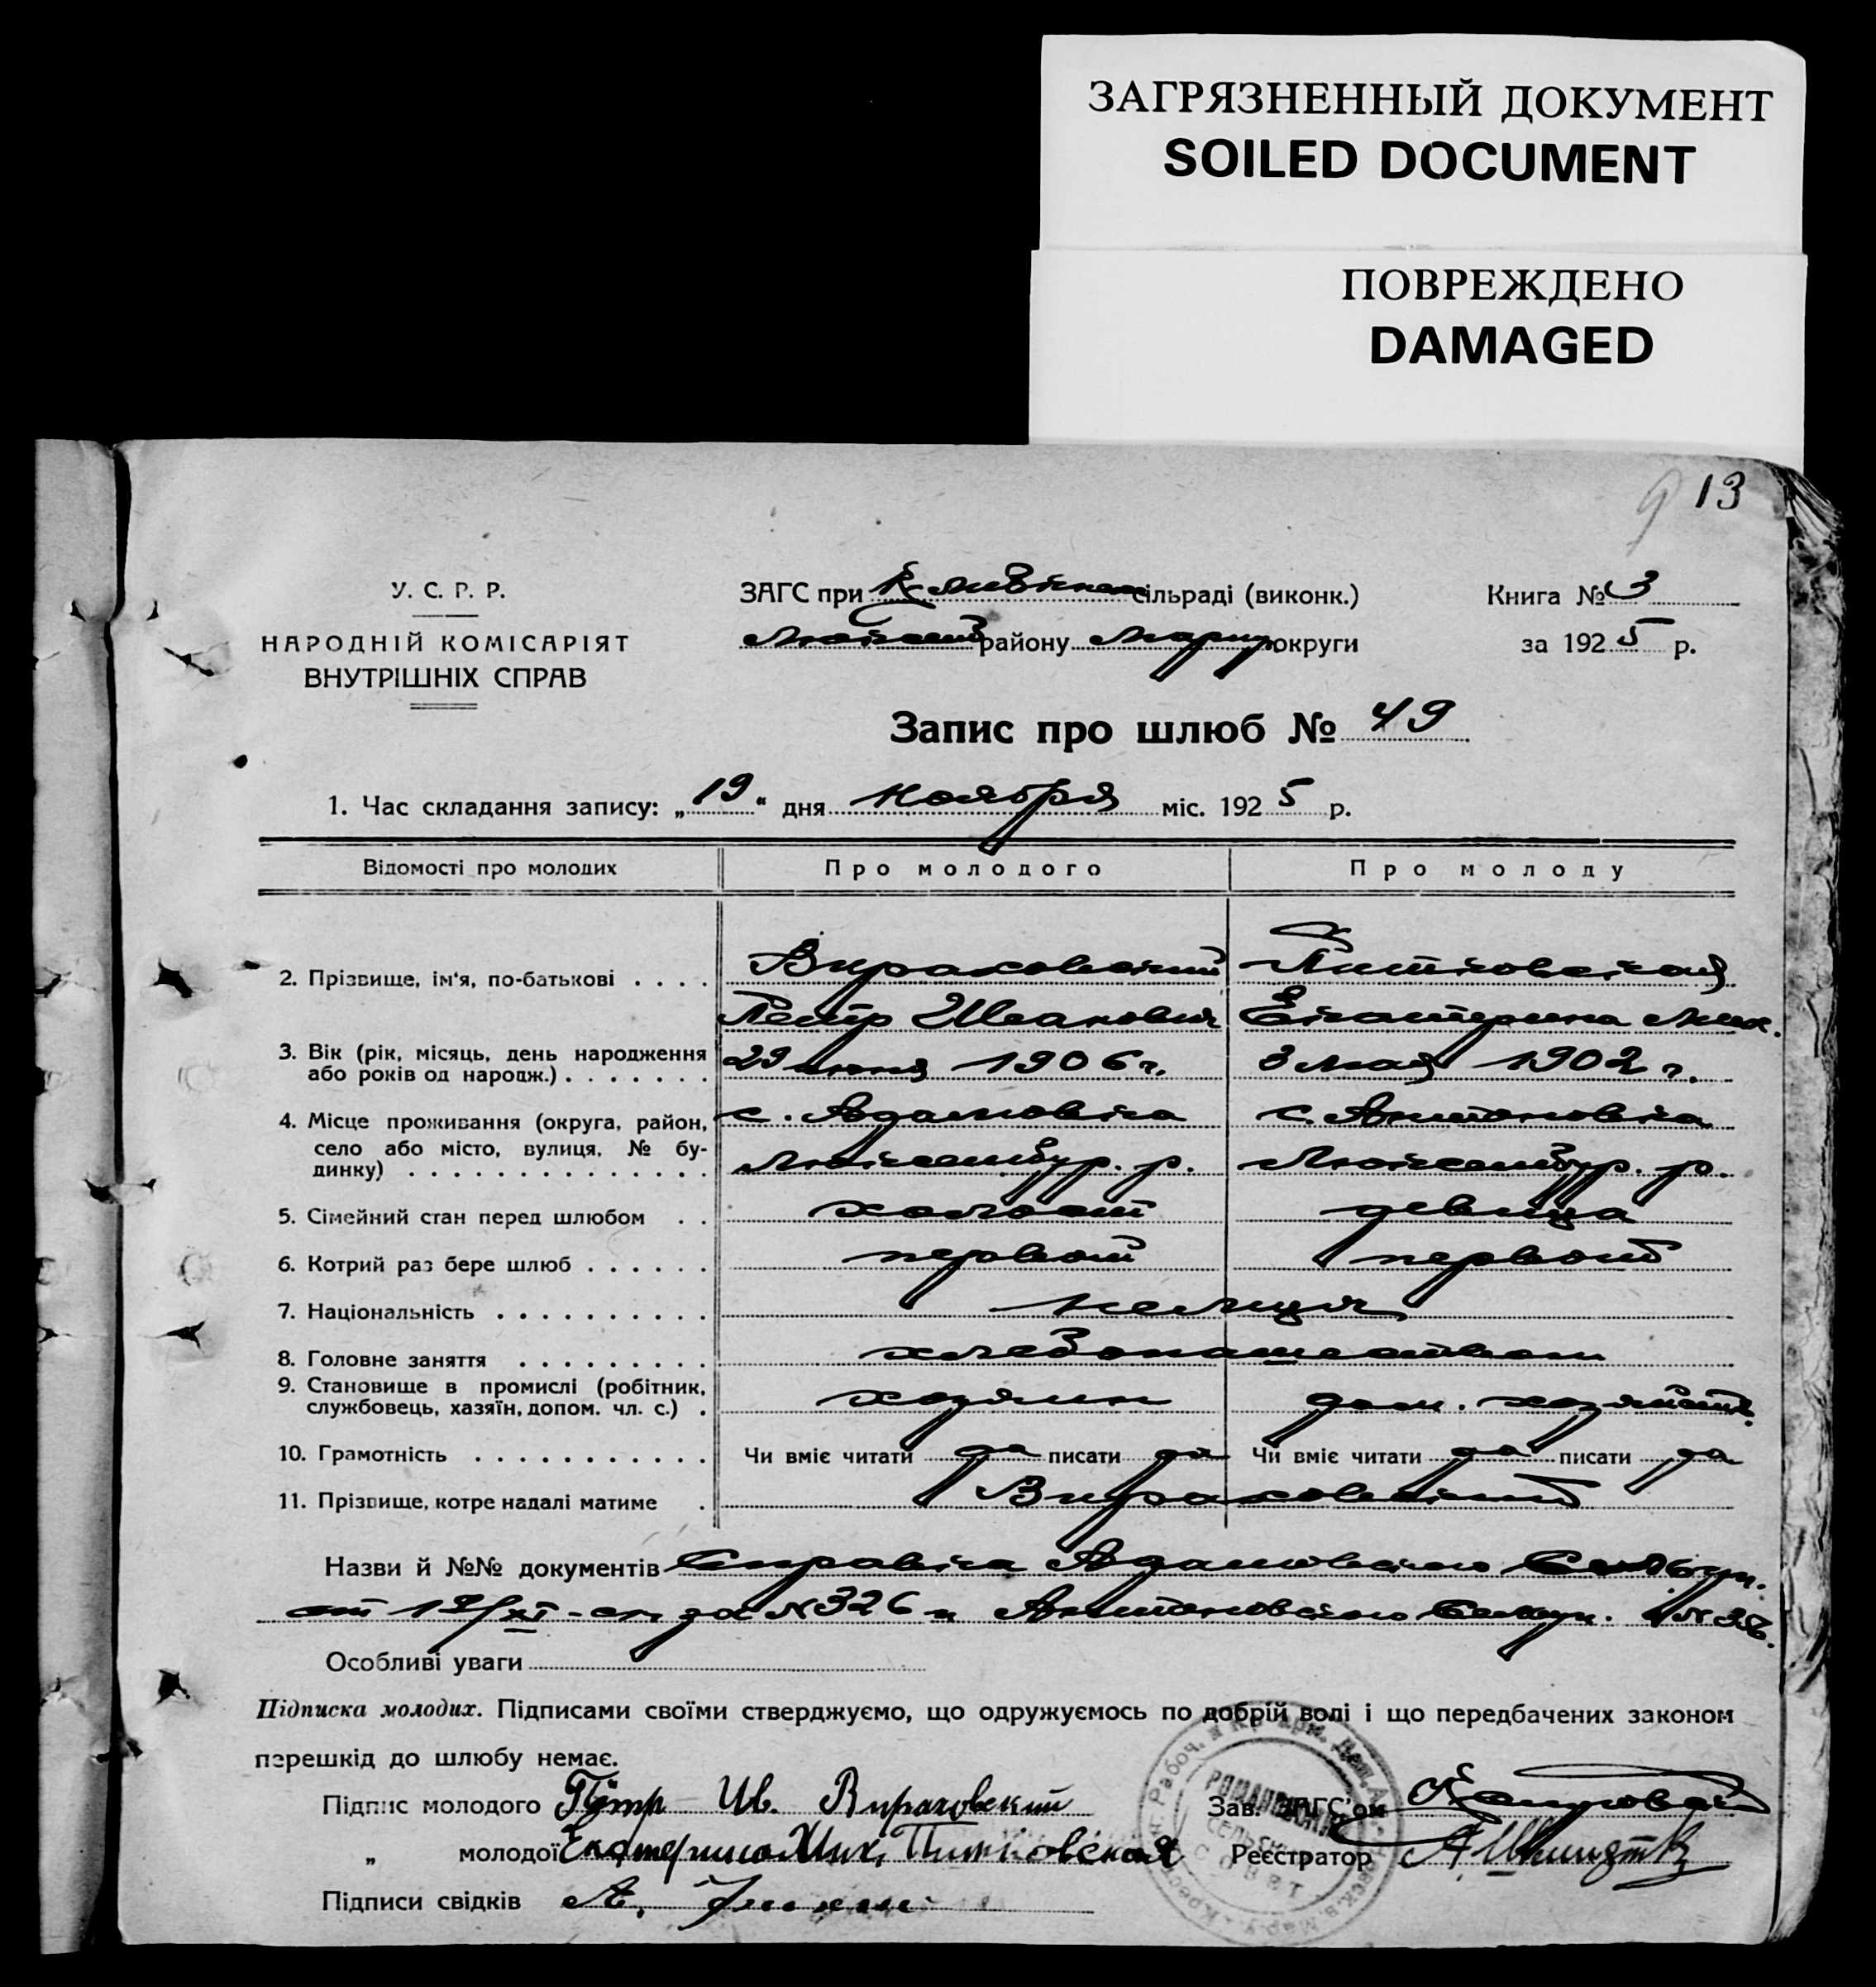 ЗАГРЯЗНЕННЫЙ ДОКУМЕНТ
SOILED DOCUMENT
ПОВРЕЖДЕНО
DAMAGED
9 13
У. С. Р. Р.
НАРОДНІЙ КОМІСАРІЯТ
ВНУТРІШНІХ СПРАВ
ЗАГС при сільраді (виконк.)
району Мариу. округи
Книга № 3
за 1925 р.
Запис про шлюб № 49
1. Час складання запису: „19“ дня ноября міс. 1925 р.
Відомості про молодих Про молодого Про молоду
2. Прізвище, ім'я, по-батькові . . . . Вираховский Питковская
Петр Иванович Екатерина Мих.
3. Вік (рік, місяць, день народження 29 июня 1906 г. 3 мая 1902 г.
або років од народж.) . . . . . . .
4. Місце проживання (округа, район, с. Адамовка с. Антоновка
село або місто, вулиця, № бу- Люксембур. р. Люксембур. р.
динку) . . . . . . . . . . . . . .
5. Сімейний стан перед шлюбом . . холост девица
6. Котрий раз бере шлюб . . . . . . первой первой
7. Національність . . . . . . . . . . немцы
8. Головне заняття . . . . . . . . . хлебопашеством
9. Становище в промислі (робітник, хозяин дом. хозяйств.
службовець, хазяїн, допом. чл. с.) .
10. Грамотність . . . . . . . . . . . Чи вміє читати да писати да Чи вміє читати да писати да
11. Прізвище, котре надалі матиме . Вираховский
Назви й №№ документів Справка Адамовского
от за № 326 и Антоновского
Особливі уваги
Підписка молодих. Підписами своїми стверджуємо, що одружуємось по добрій волі і що передбачених законом
перешкід до шлюбу немає.
Підпис молодого Петр Ив. Вираховский
„ молодої Екатерина Мих. Питковская
Підписи свідків А.
Зав. ЗАГС'ом
Реєстратор А Шмидт
РОМАНОВСКИЙ
СЕЛЬСКИЙ
СОВЕТ